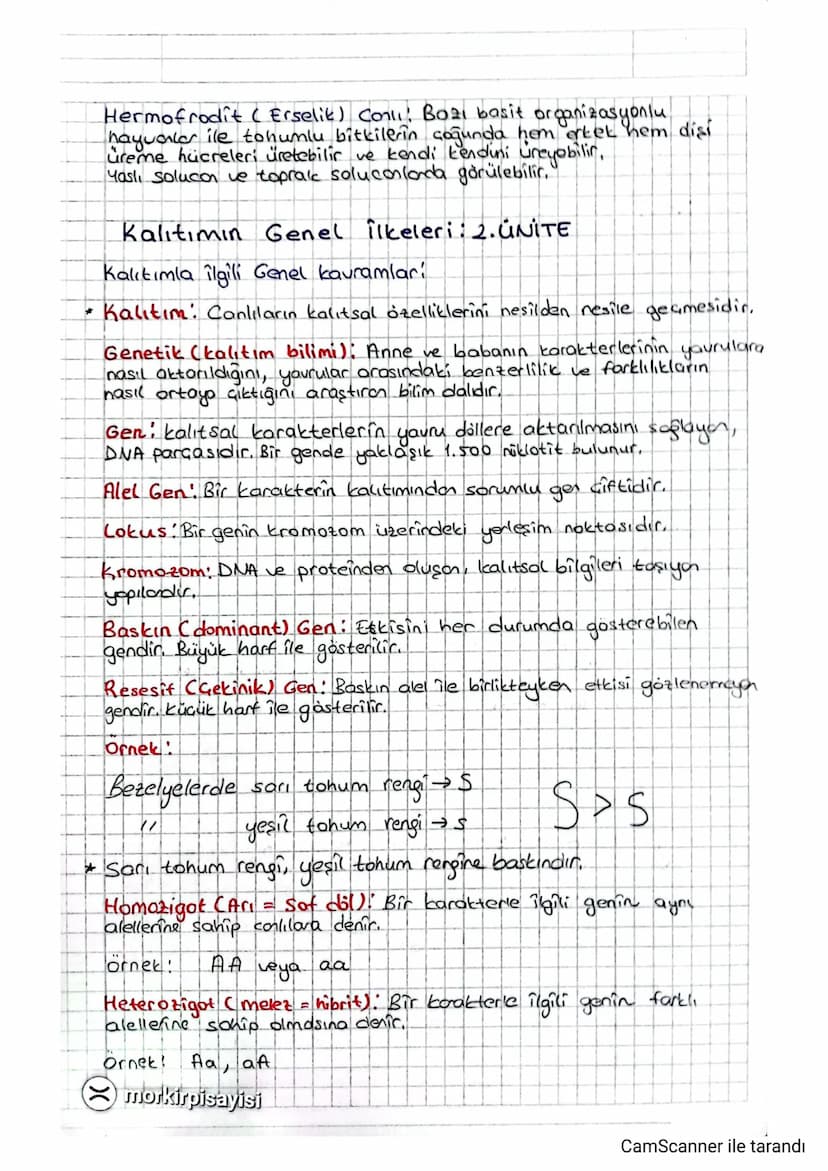 Hermofrodit (Erselik) Canlı: Bazı basit organizasyonlu
hayvanlar ile tohumlu bitkilerin çoğunda hem erkek hem dişi
üreme hücreleri üretebilir ve kendi kendini üreyebilir.
Yaslı solucan ve toprak solucanlarda görülebilir.
Kalıtımın Genel İlkeleri: 2.ÜNİTE
Kalıtımla İlgili Genel kavramlar:
* Kalıtım: Canlıların kalıtsal özelliklerini nesilden nesile geçmesidir.
Genetik (kalıtım bilimi): Anne ve babanın karakterlerinin yavrulara
nasıl aktarıldığını, yavrular arasındaki benzerlilik ve farklılıkların
nasıl ortaya çıktığını araştıran bilim dalıdır.
Gen: kalıtsal karakterlerin yavru döllere aktarılmasını sağlayan,
DNA parçasıdır. Bir gende yaklaşık 1.500 nüklotit bulunur.
Alel Gen: Bir karakterin kalıtımından sorumlu gen çiftidir.
Lokus: Bir genin kromozom üzerindeki yerleşim noktasıdır.
Kromozom: DNA ve proteinden oluşan, kalıtsal bilgileri taşıyan
yapılardır.
Baskın (dominant) Gen: Etkisini her durumda gösterebilen
gendir. Büyük harf ile gösterilir.
Resesif (Çekinik) Gen: Baskın alel ile birlikteyken etkisi gözlenemeyen
gendir. küçük harf ile gösterilir.
Örnek:
Bezelyelerde sarı tohum rengi → S
" yeşil tohum rengi → s
S > s
* Sarı tohum rengi, yeşil tohum rengine baskındır.
Homozigot (Arı = Saf döl): Bir karakterle ilgili genin aynı
alellerine sahip canlılara denir.
örnek: AA veya aa
Heterozigot (melez = hibrit): Bir karakterle ilgili genin farklı
alellerine sahip olmasına denir.
Örnek: Aa, aA
morkirpisayisi
CamScanner ile tarandı